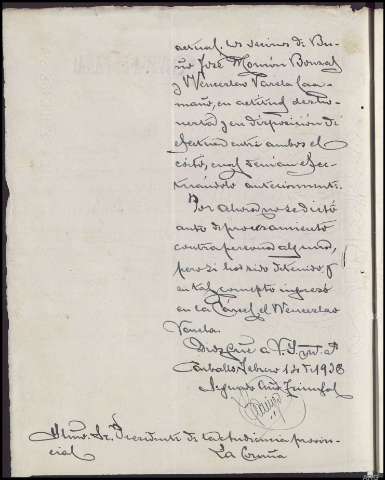 actual, los vecinos de Bu-
ño José Mourón Bouzas
y Wenceslao Varela Caa-
maño, en actitud deshonesta
y en disposición de
efectuar entre ambos el
coito, cual venían efec-
tuándolo anteriormente.
Por ahora no se dictó
auto de procesamiento
contra persona alguna,
pero si ha sido detenido y
en tal concepto ingresó
en la Cárcel el Wenceslao
Varela.
Dios gûe a V.I. m. a.
Carballo Febrero 14 de 1938
Segundo Año Triunfal
Iltmo. Sr. Presidente de la Audiencia provin-
cial
La Coruña